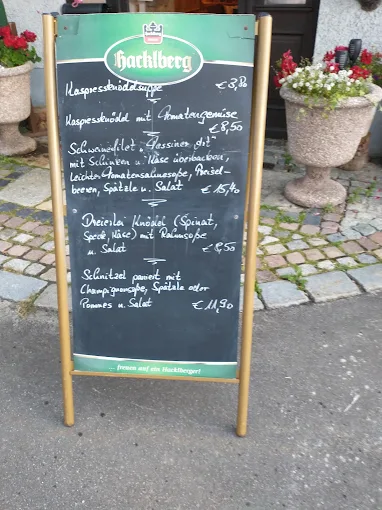 Hacklberg
Kaspressknödelsuppe € 3,80
Kaspressknödel mit Tomatengemüse
€ 8,50
Schweinefilet "Gassiner Art"
mit Schinken u. Käse überbacken,
leichter Tomatensahnesoße, Preisel-
beeren, Spätzle u. Salat € 15,40
Dreierlei Knödel (Spinat,
Speck, Käse) mit Rahmsoße
u. Salat € 8,50
Schnitzel paniert mit
Champignonsoße, Spätzle oder
Pommes u. Salat € 11,90
... freuen auf ein Hacklberger!